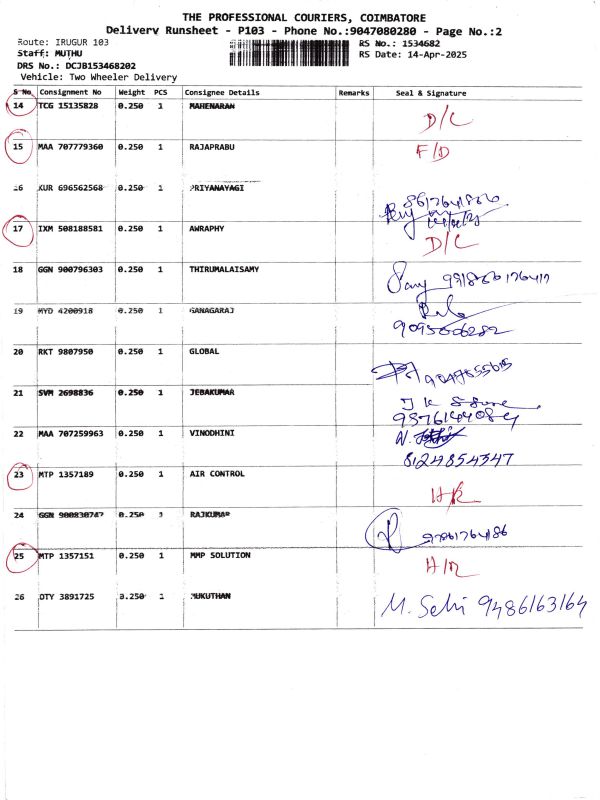 THE PROFESSIONAL COURIERS, COIMBATORE
Delivery Runsheet - P103 - Phone No.:9047080280 - Page No.:2
Route: IRUGUR 103
RS No.: 1534682
Staff: MUTHU
RS Date: 14-Apr-2025
DRS No.: DCJB153468202
Vehicle: Two Wheeler Delivery
S No Consignment No Weight PCS Consignee Details Remarks Seal & Signature
14 TCG 15135828 0.250 1 MAHENARAN D/C
15 MAA 707779360 0.250 1 RAJAPRABU F/D
16 KUR 696562568 0.250 1 PRIYANAYAGI
17 IXM 508188581 0.250 1 AWRAPHY D/C
18 GGN 900796303 0.250 1 THIRUMALAISAMY
19 MYD 4200918 0.250 1 GANAGARAJ
20 RKT 9807950 0.250 1 GLOBAL
21 SVM 2698836 0.250 1 JEBAKUMAR
22 MAA 707259963 0.250 1 VINODHINI
8124854347
23 MTP 1357189 0.250 1 AIR CONTROL
24 GGN 900830747 0.250 1 RAJKUMAR
25 MTP 1357151 0.250 1 MMP SOLUTION
26 OTY 3891725 0.250 1 MUKUTHAN M. Selvi 9486163164